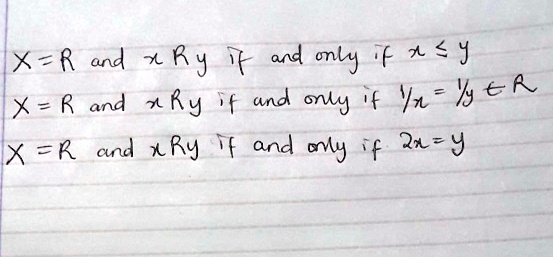 X = R and x R y if and only if x ≤ y
X = R and x R y if and only if 1/x = 1/y ∈ R
X = R and x R y if and only if 2x = y